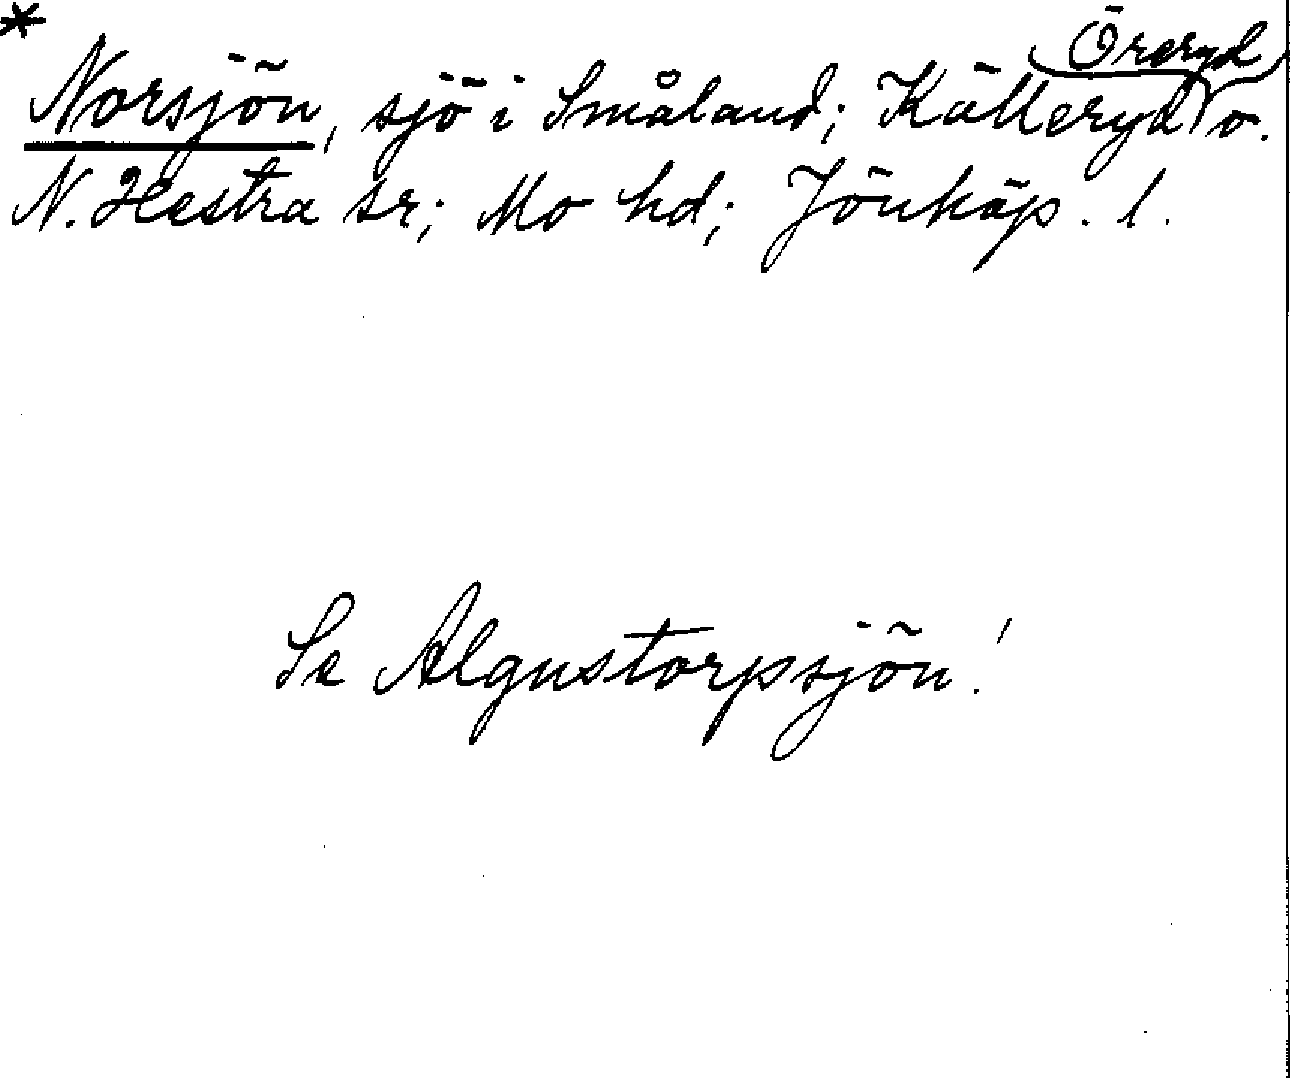 *
Öreryd
Norsjön, sjö i Småland; Källeryd o.
N. Hestra sr; Mo hd; Jönköp. l.
Se Algustorpsjön!